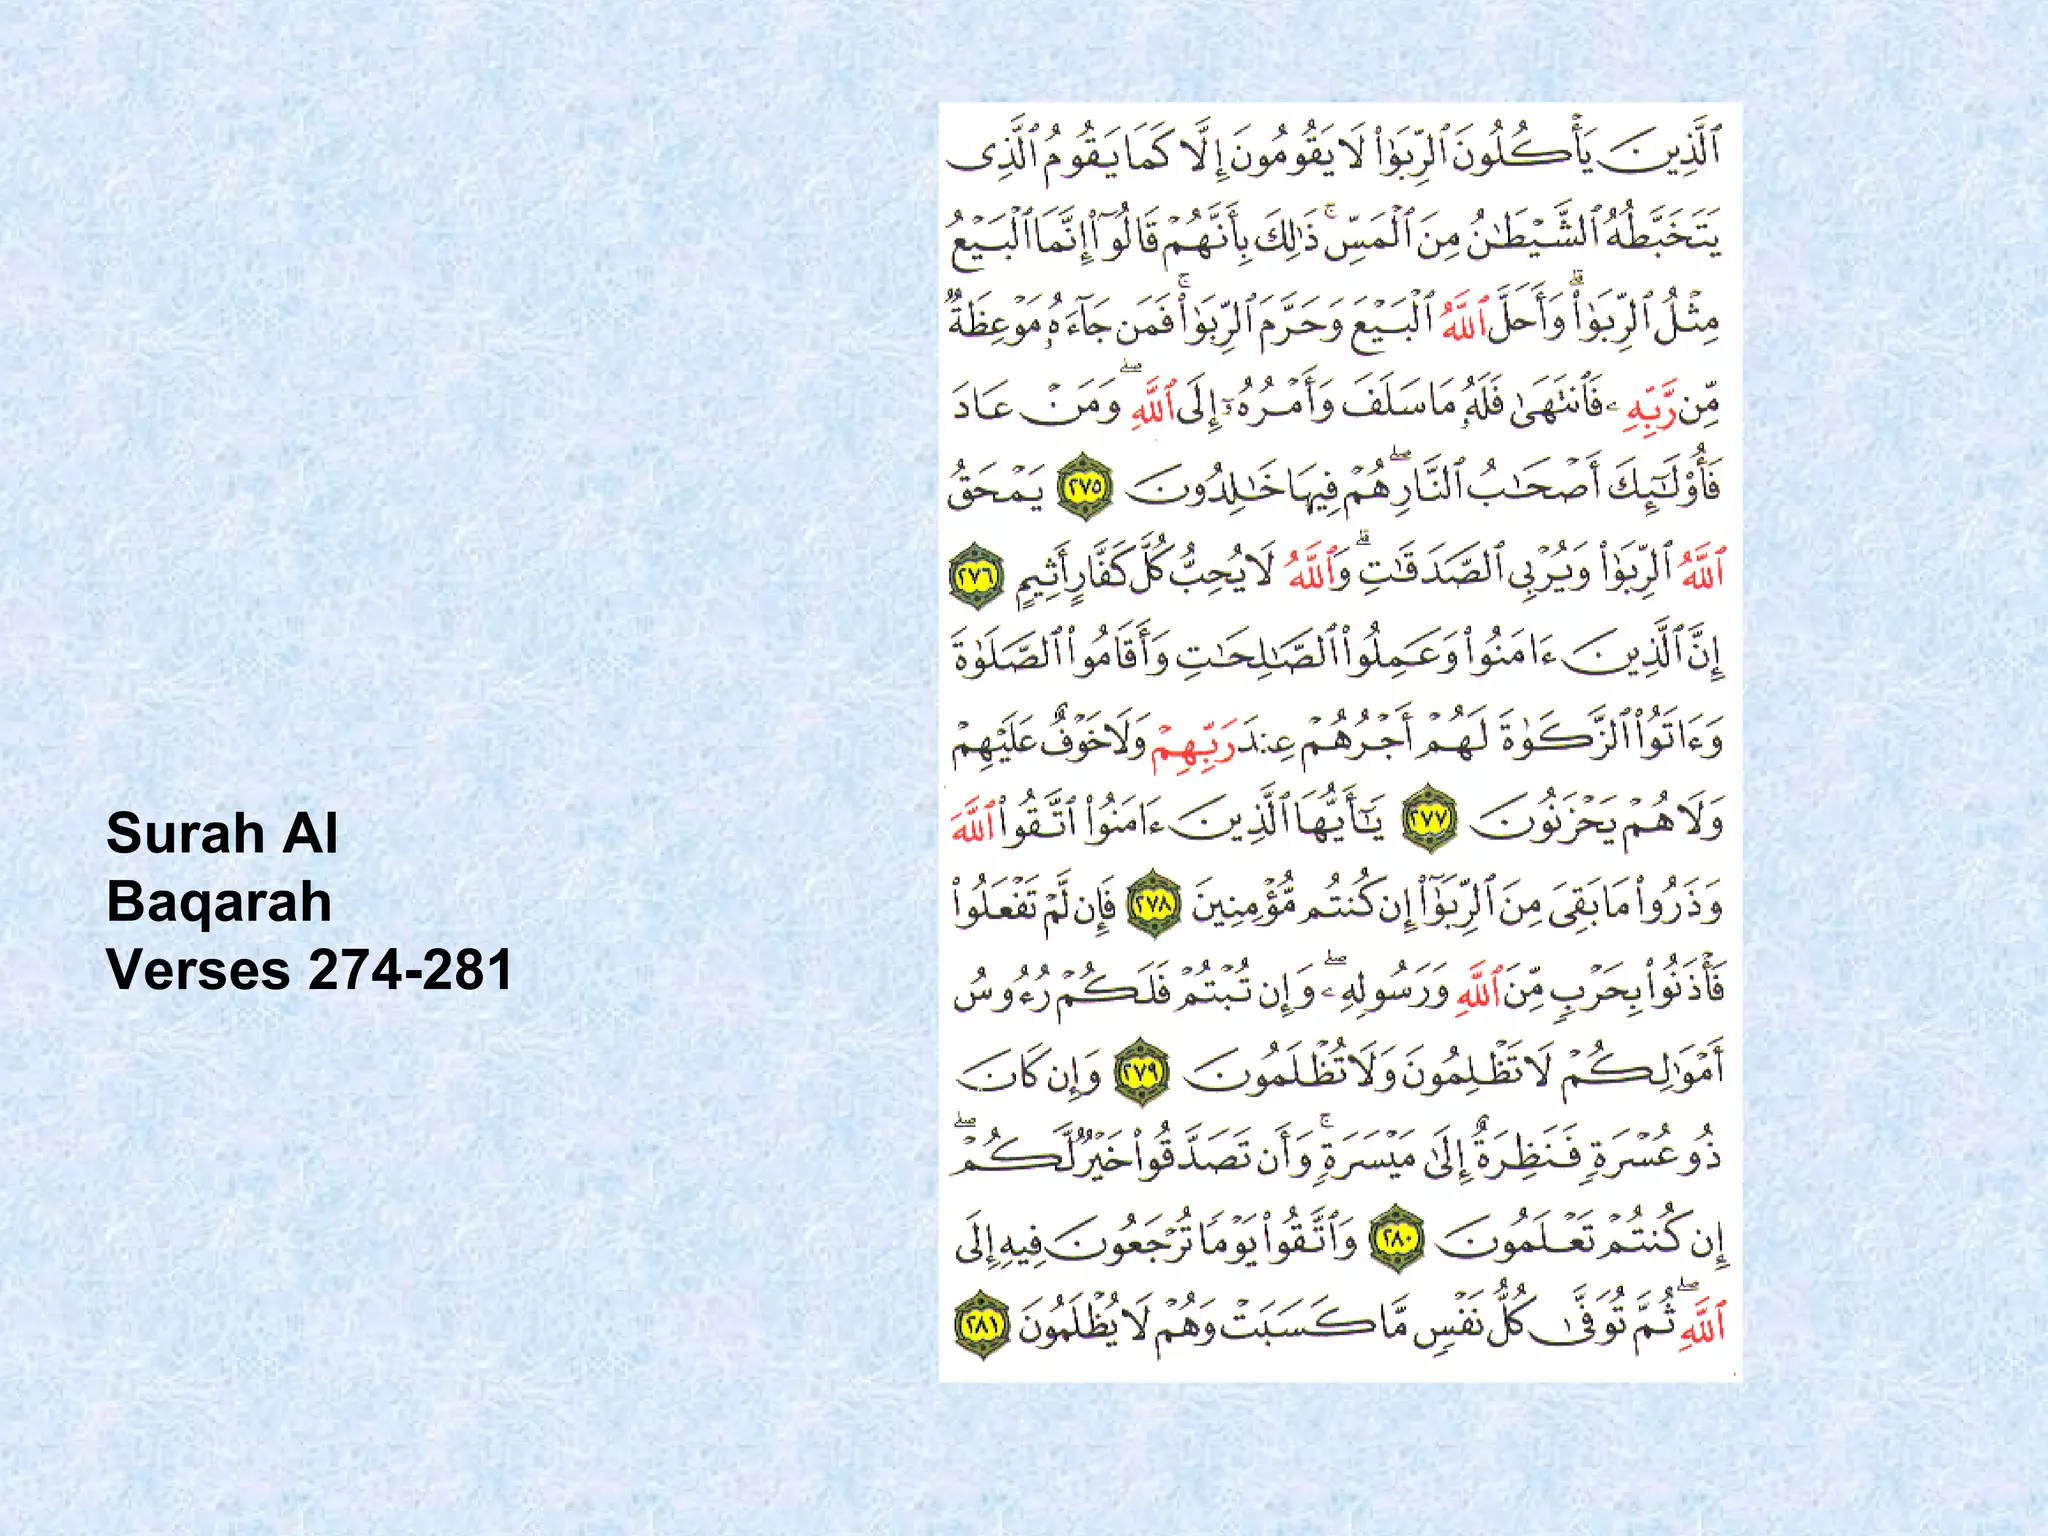 Surah Al
Baqarah
Verses 274-281
ٱلَّذِينَ يَأْكُلُونَ ٱلرِّبَوٰا۟ لَا يَقُومُونَ إِلَّا كَمَا يَقُومُ ٱلَّذِى
يَتَخَبَّطُهُ ٱلشَّيْطَـٰنُ مِنَ ٱلْمَسِّ ۚ ذَٰلِكَ بِأَنَّهُمْ قَالُوٓا۟ إِنَّمَا ٱلْبَيْعُ
مِثْلُ ٱلرِّبَوٰا۟ ۗ وَأَحَلَّ ٱللَّهُ ٱلْبَيْعَ وَحَرَّمَ ٱلرِّبَوٰا۟ ۚ فَمَن جَآءَهُۥ مَوْعِظَةٌ
مِّن رَّبِّهِۦ فَٱنتَهَىٰ فَلَهُۥ مَا سَلَفَ وَأَمْرُهُۥٓ إِلَى ٱللَّهِ ۖ وَمَنْ عَادَ
فَأُو۟لَـٰٓئِكَ أَصْحَـٰبُ ٱلنَّارِ ۖ هُمْ فِيهَا خَـٰلِدُونَ ٢٧٥ يَمْحَقُ
ٱللَّهُ ٱلرِّبَوٰا۟ وَيُرْبِى ٱلصَّدَقَـٰتِ ۗ وَٱللَّهُ لَا يُحِبُّ كُلَّ كَفَّارٍ أَثِيمٍ ٢٧٦
إِنَّ ٱلَّذِينَ ءَامَنُوا۟ وَعَمِلُوا۟ ٱلصَّـٰلِحَـٰتِ وَأَقَامُوا۟ ٱلصَّلَوٰةَ
وَءَاتَوُا۟ ٱلزَّكَوٰةَ لَهُمْ أَجْرُهُمْ عِندَ رَبِّهِمْ وَلَا خَوْفٌ عَلَيْهِمْ
وَلَا هُمْ يَحْزَنُونَ ٢٧٧ يَـٰٓأَيُّهَا ٱلَّذِينَ ءَامَنُوا۟ ٱتَّقُوا۟ ٱللَّهَ
وَذَرُوا۟ مَا بَقِىَ مِنَ ٱلرِّبَوٰٓا۟ إِن كُنتُم مُّؤْمِنِينَ ٢٧٨ فَإِن لَّمْ تَفْعَلُوا۟
فَأْذَنُوا۟ بِحَرْبٍ مِّنَ ٱللَّهِ وَرَسُولِهِۦ ۖ وَإِن تُبْتُمْ فَلَكُمْ رُءُوسُ
أَمْوَٰلِكُمْ لَا تَظْلِمُونَ وَلَا تُظْلَمُونَ ٢٧٩ وَإِن كَانَ
ذُو عُسْرَةٍ فَنَظِرَةٌ إِلَىٰ مَيْسَرَةٍ ۚ وَأَن تَصَدَّقُوا۟ خَيْرٌ لَّكُمْ ۖ
إِن كُنتُمْ تَعْلَمُونَ ٢٨٠ وَٱتَّقُوا۟ يَوْمًا تُرْجَعُونَ فِيهِ إِلَى
ٱللَّهِ ۖ ثُمَّ تُوَفَّىٰ كُلُّ نَفْسٍ مَّا كَسَبَتْ وَهُمْ لَا يُظْلَمُونَ ٢٨١